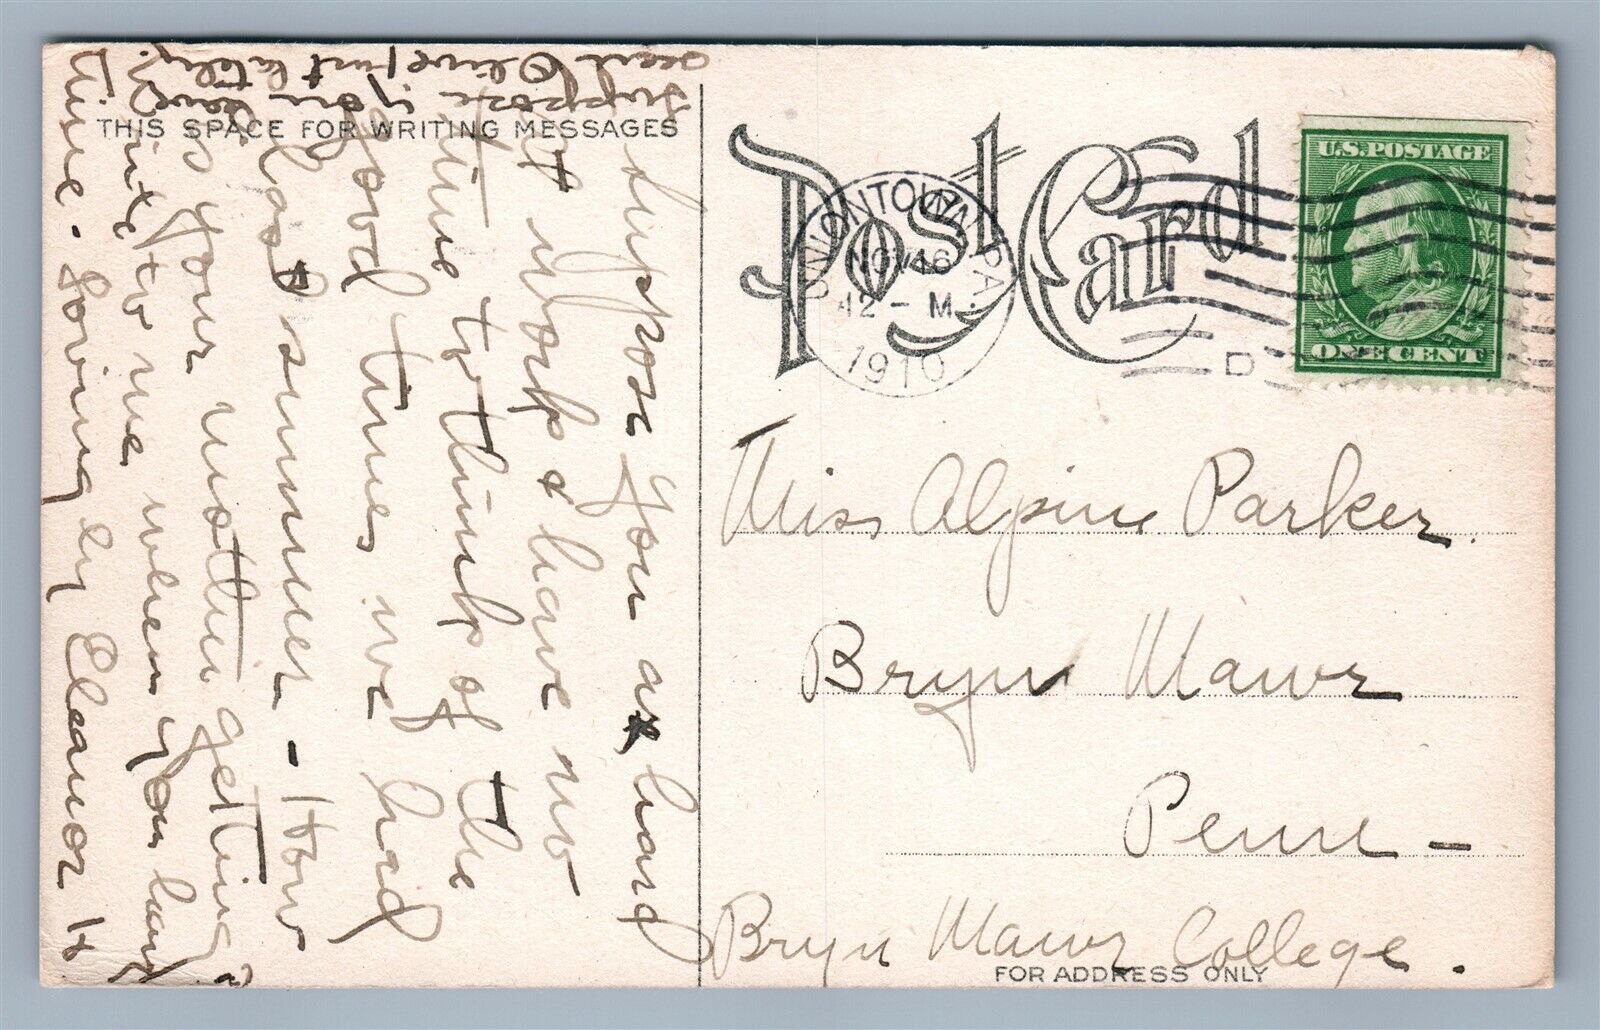 THIS SPACE FOR WRITING MESSAGES
Suppose you are hard
at work & have no
time to think of the
good times we had
last summer - How
is your mother getting?
Write to me when you have
time. Lovingly Eleanor H
Suppose you have
seen Olive just lately.
Post Card
UNIONTOWN, PA.
NOV 16
12 - M
1910
D
U.S. POSTAGE
ONE CENT
Miss Alpine Parker.
Bryn Mawr
Penn -
Bryn Mawr College.
FOR ADDRESS ONLY